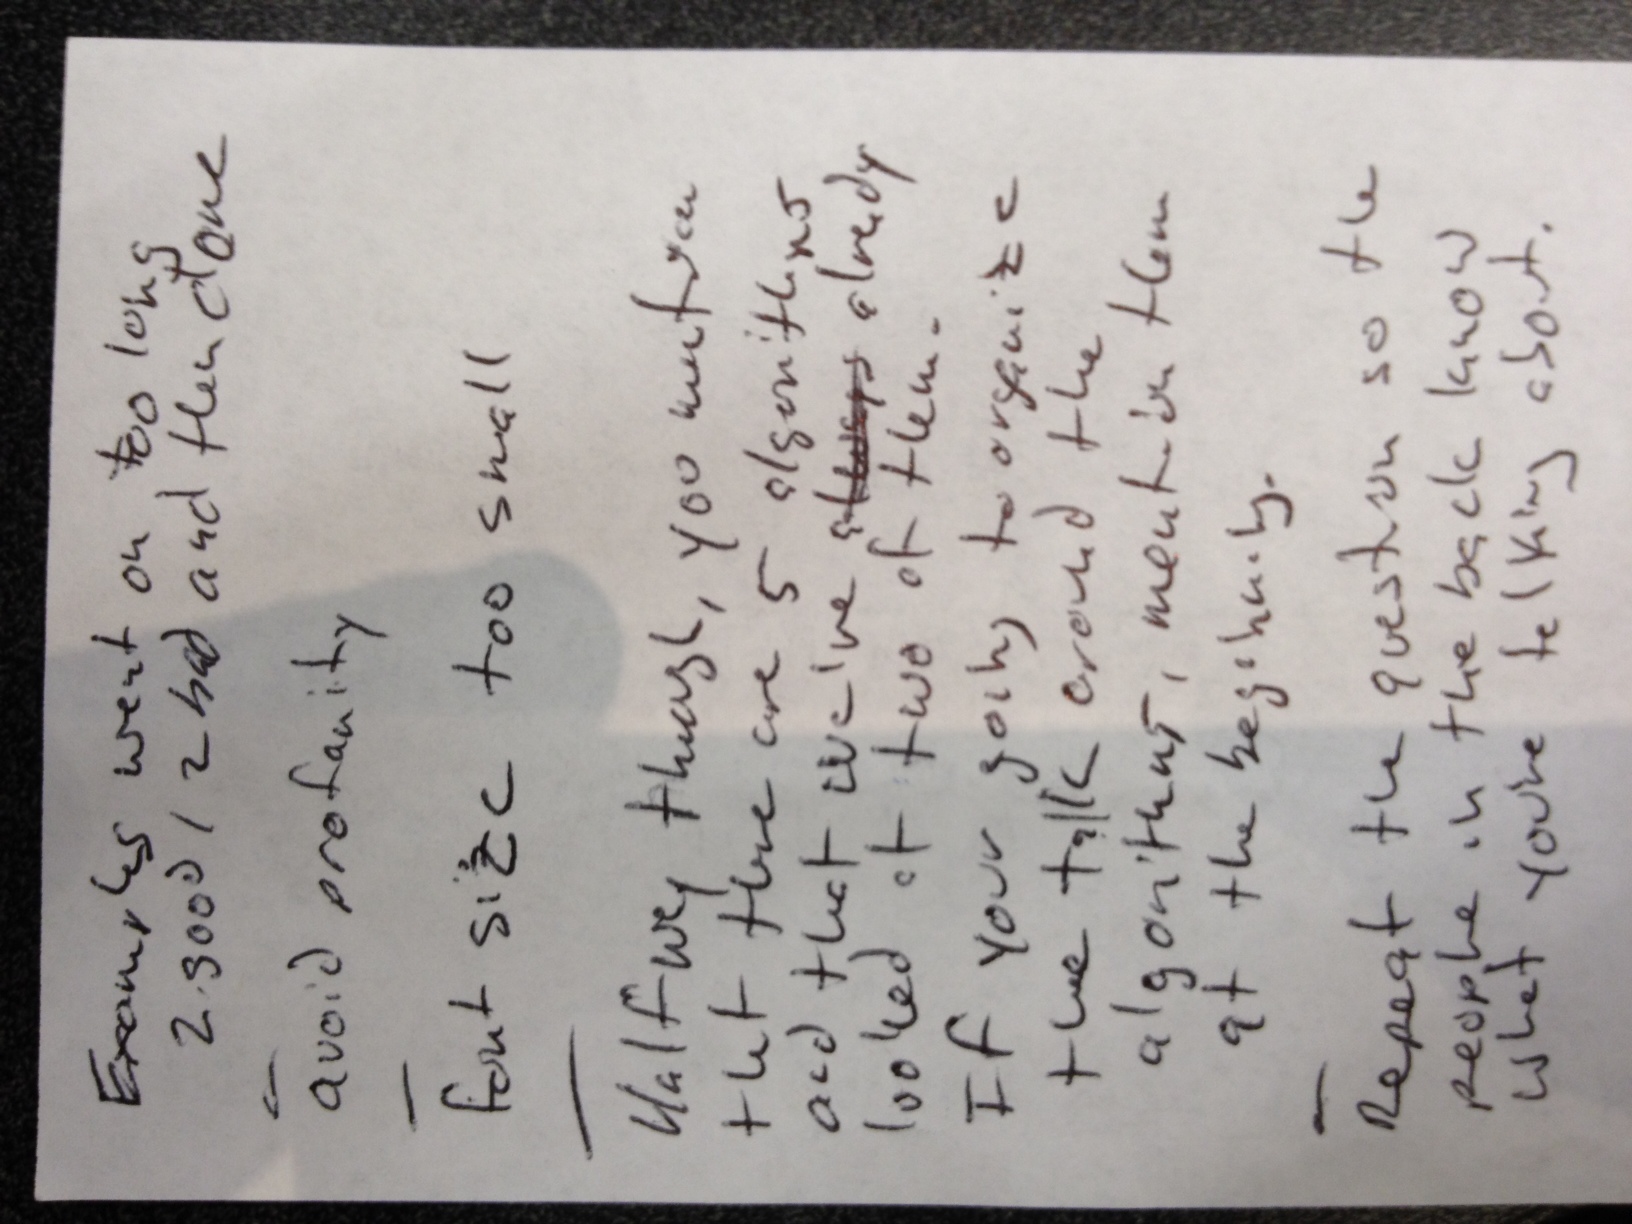 Examples went on too long
2 good / 2 bad and then done
avoid profanity
font size too small
Halfway though, you mention
that there are 5 algorithms
and that we've always already
looked at two of them.
If your going to organize
the talk around the
algorithms, mention them
at the beginning.
Repeat the question so the
people in the back know
what you're talking about.